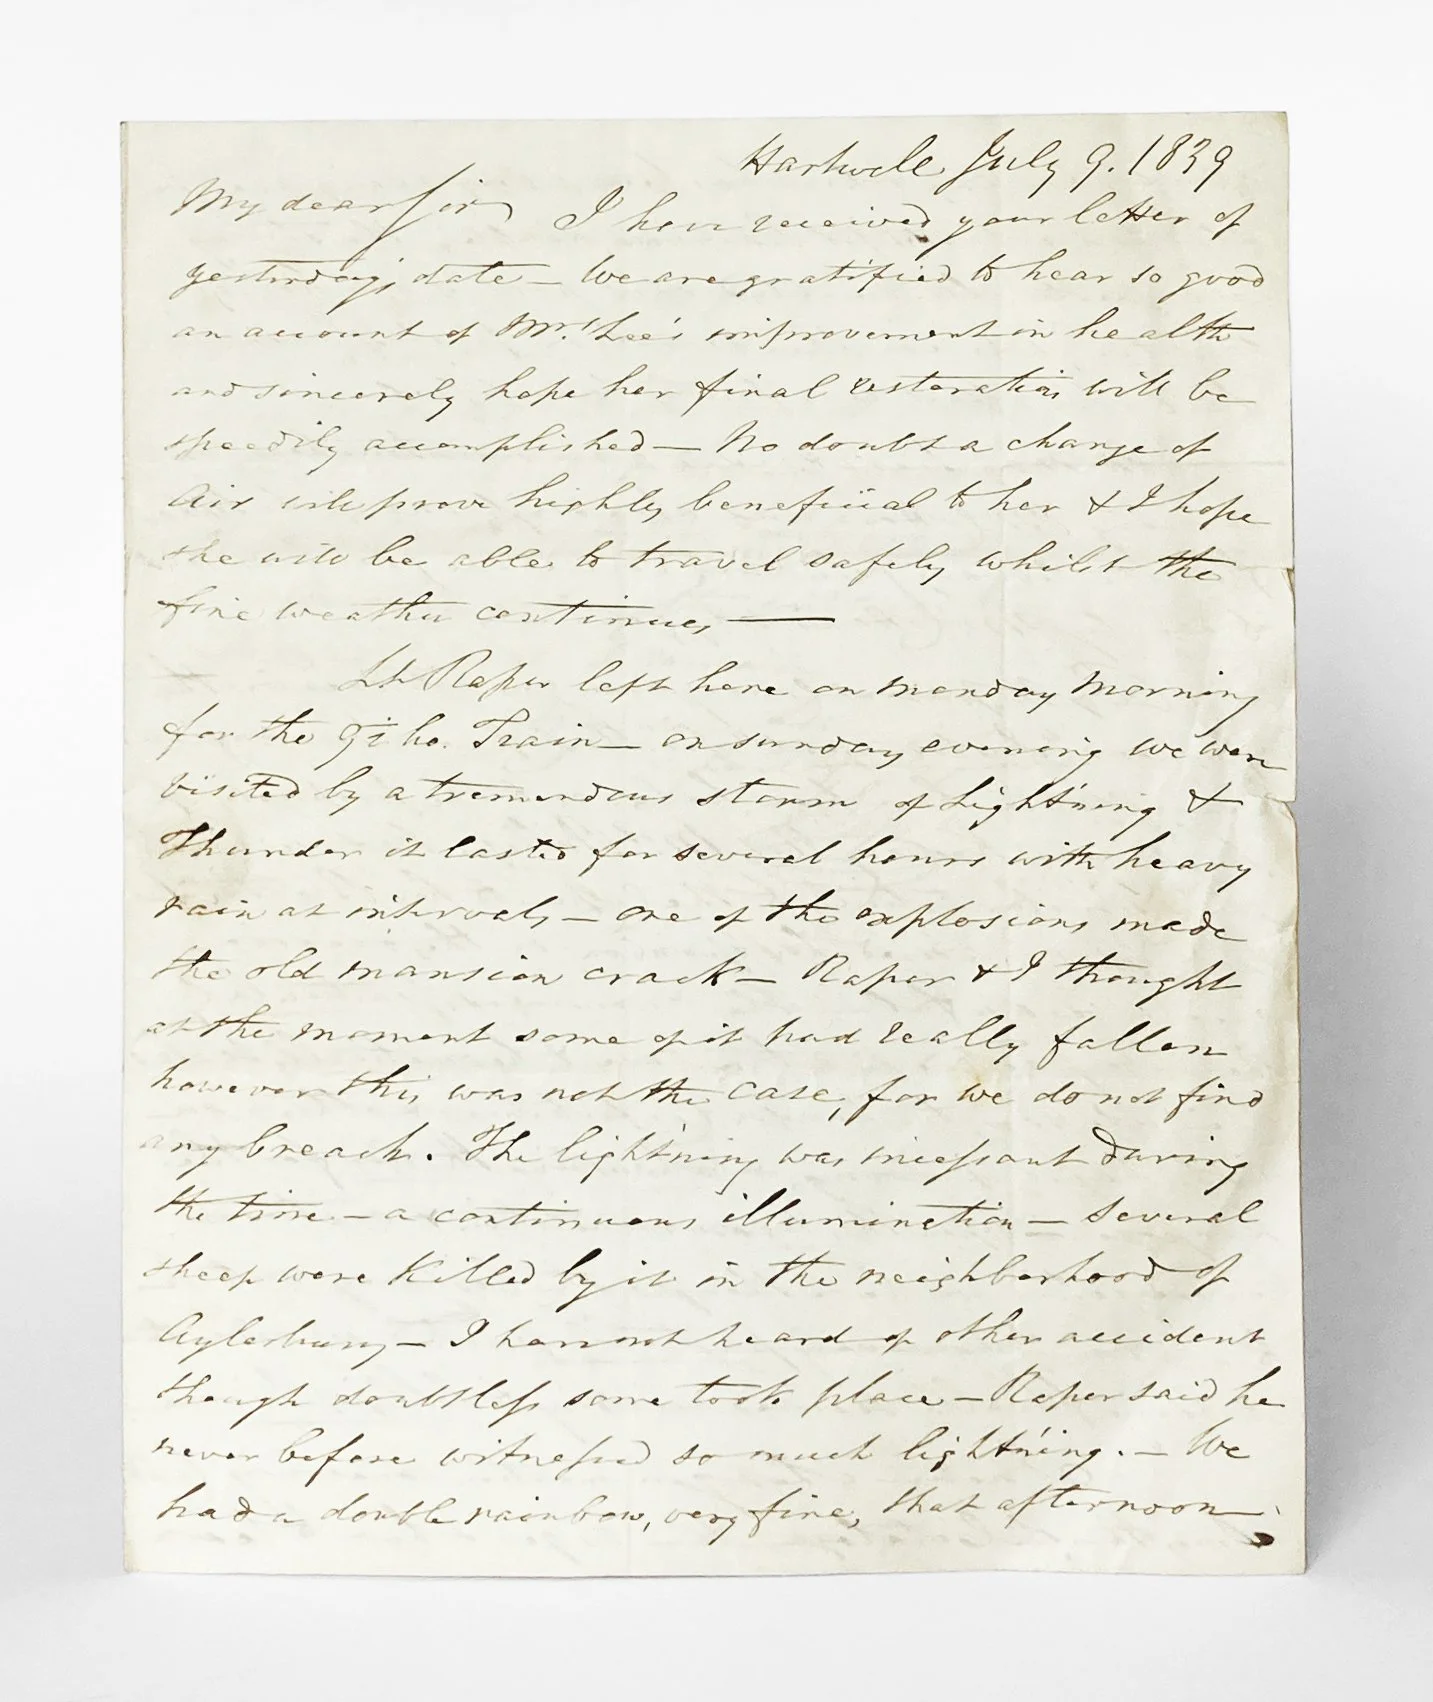 Hartwell July 9. 1839
My dear Sir I have received your letter of
yesterday's date — We are gratified to hear so good
an account of Mrs. Lee's improvement in health
and sincerely hope her final restoration will be
speedily accomplished — No doubt a change of
Air will prove highly beneficial to her & I hope
she will be able to travel safely whilst the
fine weather continues, —
Lt Raper left here on monday morning
for the ho. Train — on sunday evening we were
visited by a tremendous storm of Lightning &
Thunder it lasted for several hours with heavy
rain at intervals — one of the explosions made
the old mansion crack — Raper & I thought
at the moment some of it had really fallen
however this was not the case, for we do not find
any breach. The lightning was incessant during
the time — a continuous illumination — Several
sheep were killed by it in the neighborhood of
Aylesbury — I have not heard of other accident
though doubtless some took place — Raper said he
never before witnessed so much lightning. — We
had a double rainbow, very fine, that afternoon